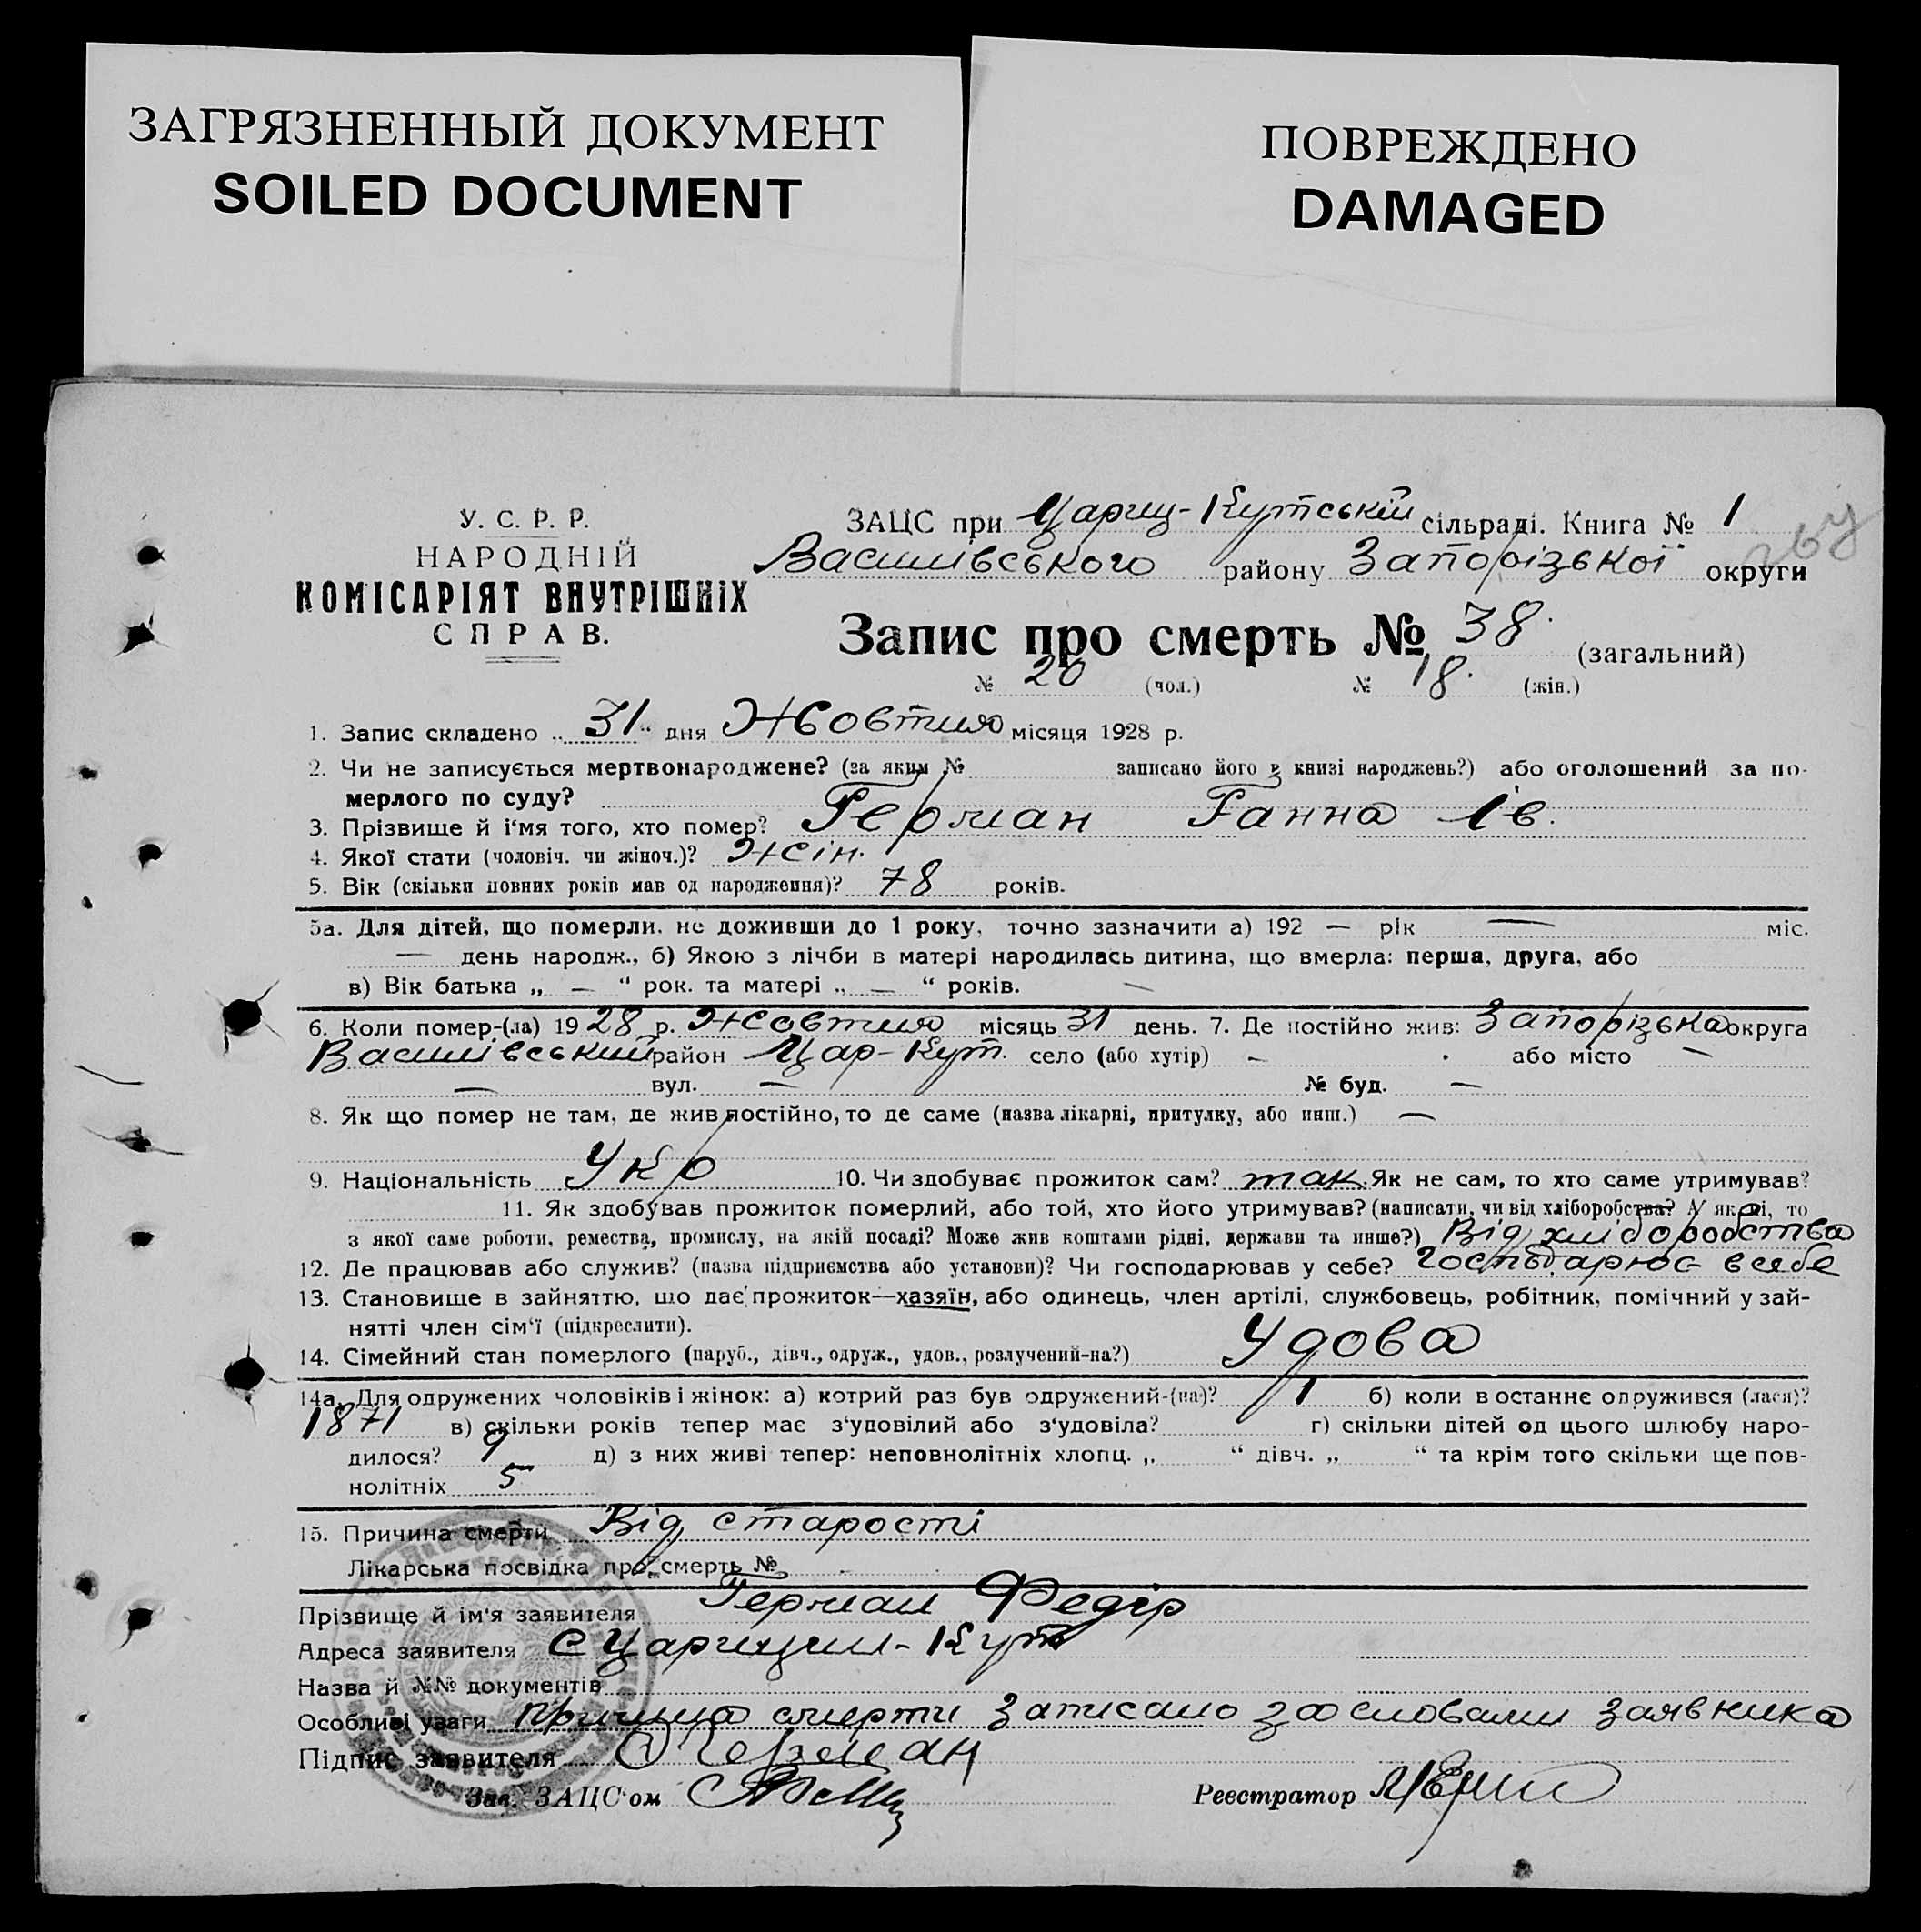 ЗАГРЯЗНЕННЫЙ ДОКУМЕНТ
SOILED DOCUMENT
ПОВРЕЖДЕНО
DAMAGED
У. С. Р. Р.
НАРОДНІЙ
КОМІСАРІЯТ ВНУТРІШНІХ
СПРАВ.
ЗАЦС при Цариц-Кутській сільраді. Книга № 1
Василівського району Запорізької округи
Запис про смерть № 38. (загальний)
№ 20 (чол.) № 18. (жін.)
1. Запис складено „31“ дня Жовтня місяця 1928 р.
2. Чи не записується мертвонароджене? (за яким № записано його в книзі народжень?) або оголошений за по-
мерлого по суду?
3. Прізвище й і'мя того, хто помер? Герман Ганна Ів.
4. Якої стати (чоловіч. чи жіноч.)? Жін.
5. Вік (скільки повних років мав од народження)? 78 років.
5а. Для дітей, що померли, не доживши до 1 року, точно зазначити а) 192 — рік — міс.
— день народж., б) Якою з лічби в матері народилась дитина, що вмерла: перша, друга, або
в) Вік батька „ — “ рок. та матері „ — “ років. —
6. Коли помер-(ла) 1928 р. Жовтня місяць 31 день. 7. Де постійно жив: Запорізька округа
Василівський район Цар-Кут. село (або хутір) — або місто —
— вул. — № буд. —
8. Як що помер не там, де жив постійно, то де саме (назва лікарні, притулку, або инш.) —
9. Національність Укр 10. Чи здобуває прожиток сам? так. Як не сам, то хто саме утримував?
11. Як здобував прожиток померлий, або той, хто його утримував? (написати, чи від хліборобства? А як ні, то
з якої саме роботи, ремества, промислу, на якій посаді? Може жив коштами рідні, держави та инше?) Від хліборобства
12. Де працював або служив? (назва підприємства або установи)? Чи господарював у себе? Господарює в себе
13. Становище в зайняттю, що дає прожиток—хазяїн, або одинець, член артілі, службовець, робітник, помічний у зай-
нятті член сім‘ї (підкреслити).
14. Сімейний стан померлого (паруб., дівч., одруж., удов., розлучений-на?) Удова
14а. Для одружених чоловіків і жінок: а) котрий раз був одружений-(на)? 1 б) коли в останнє одружився (лася)?
1871 в) скільки років тепер має з‘удовілий або з‘удовіла? г) скільки дітей од цього шлюбу наро-
дилося? 9 д) з них живі тепер: неповнолітніх хлопц. „ “ дівч. „ “ та крім того скільки ще пов-
нолітніх 5
15. Причина смерти Від старості
Лікарська посвідка про смерть №
Прізвище й ім'я заявителя Герман Федір
Адреса заявителя с Царицин-Кут
Назва й №№ документів
Особливі уваги Причина смерти записано за словами заявника
Підпис заявителя Ф Герман
Зав. ЗАЦС‘ом
Реєстратор